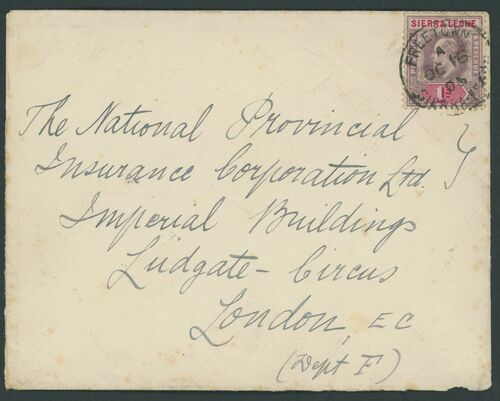 SIERRA LEONE
FREETOWN
A
OC 16
05
1d
The National Provincial
Insurance Corporation Ltd.
Imperial Buildings
Ludgate - Circus
London, EC
(Dept F)